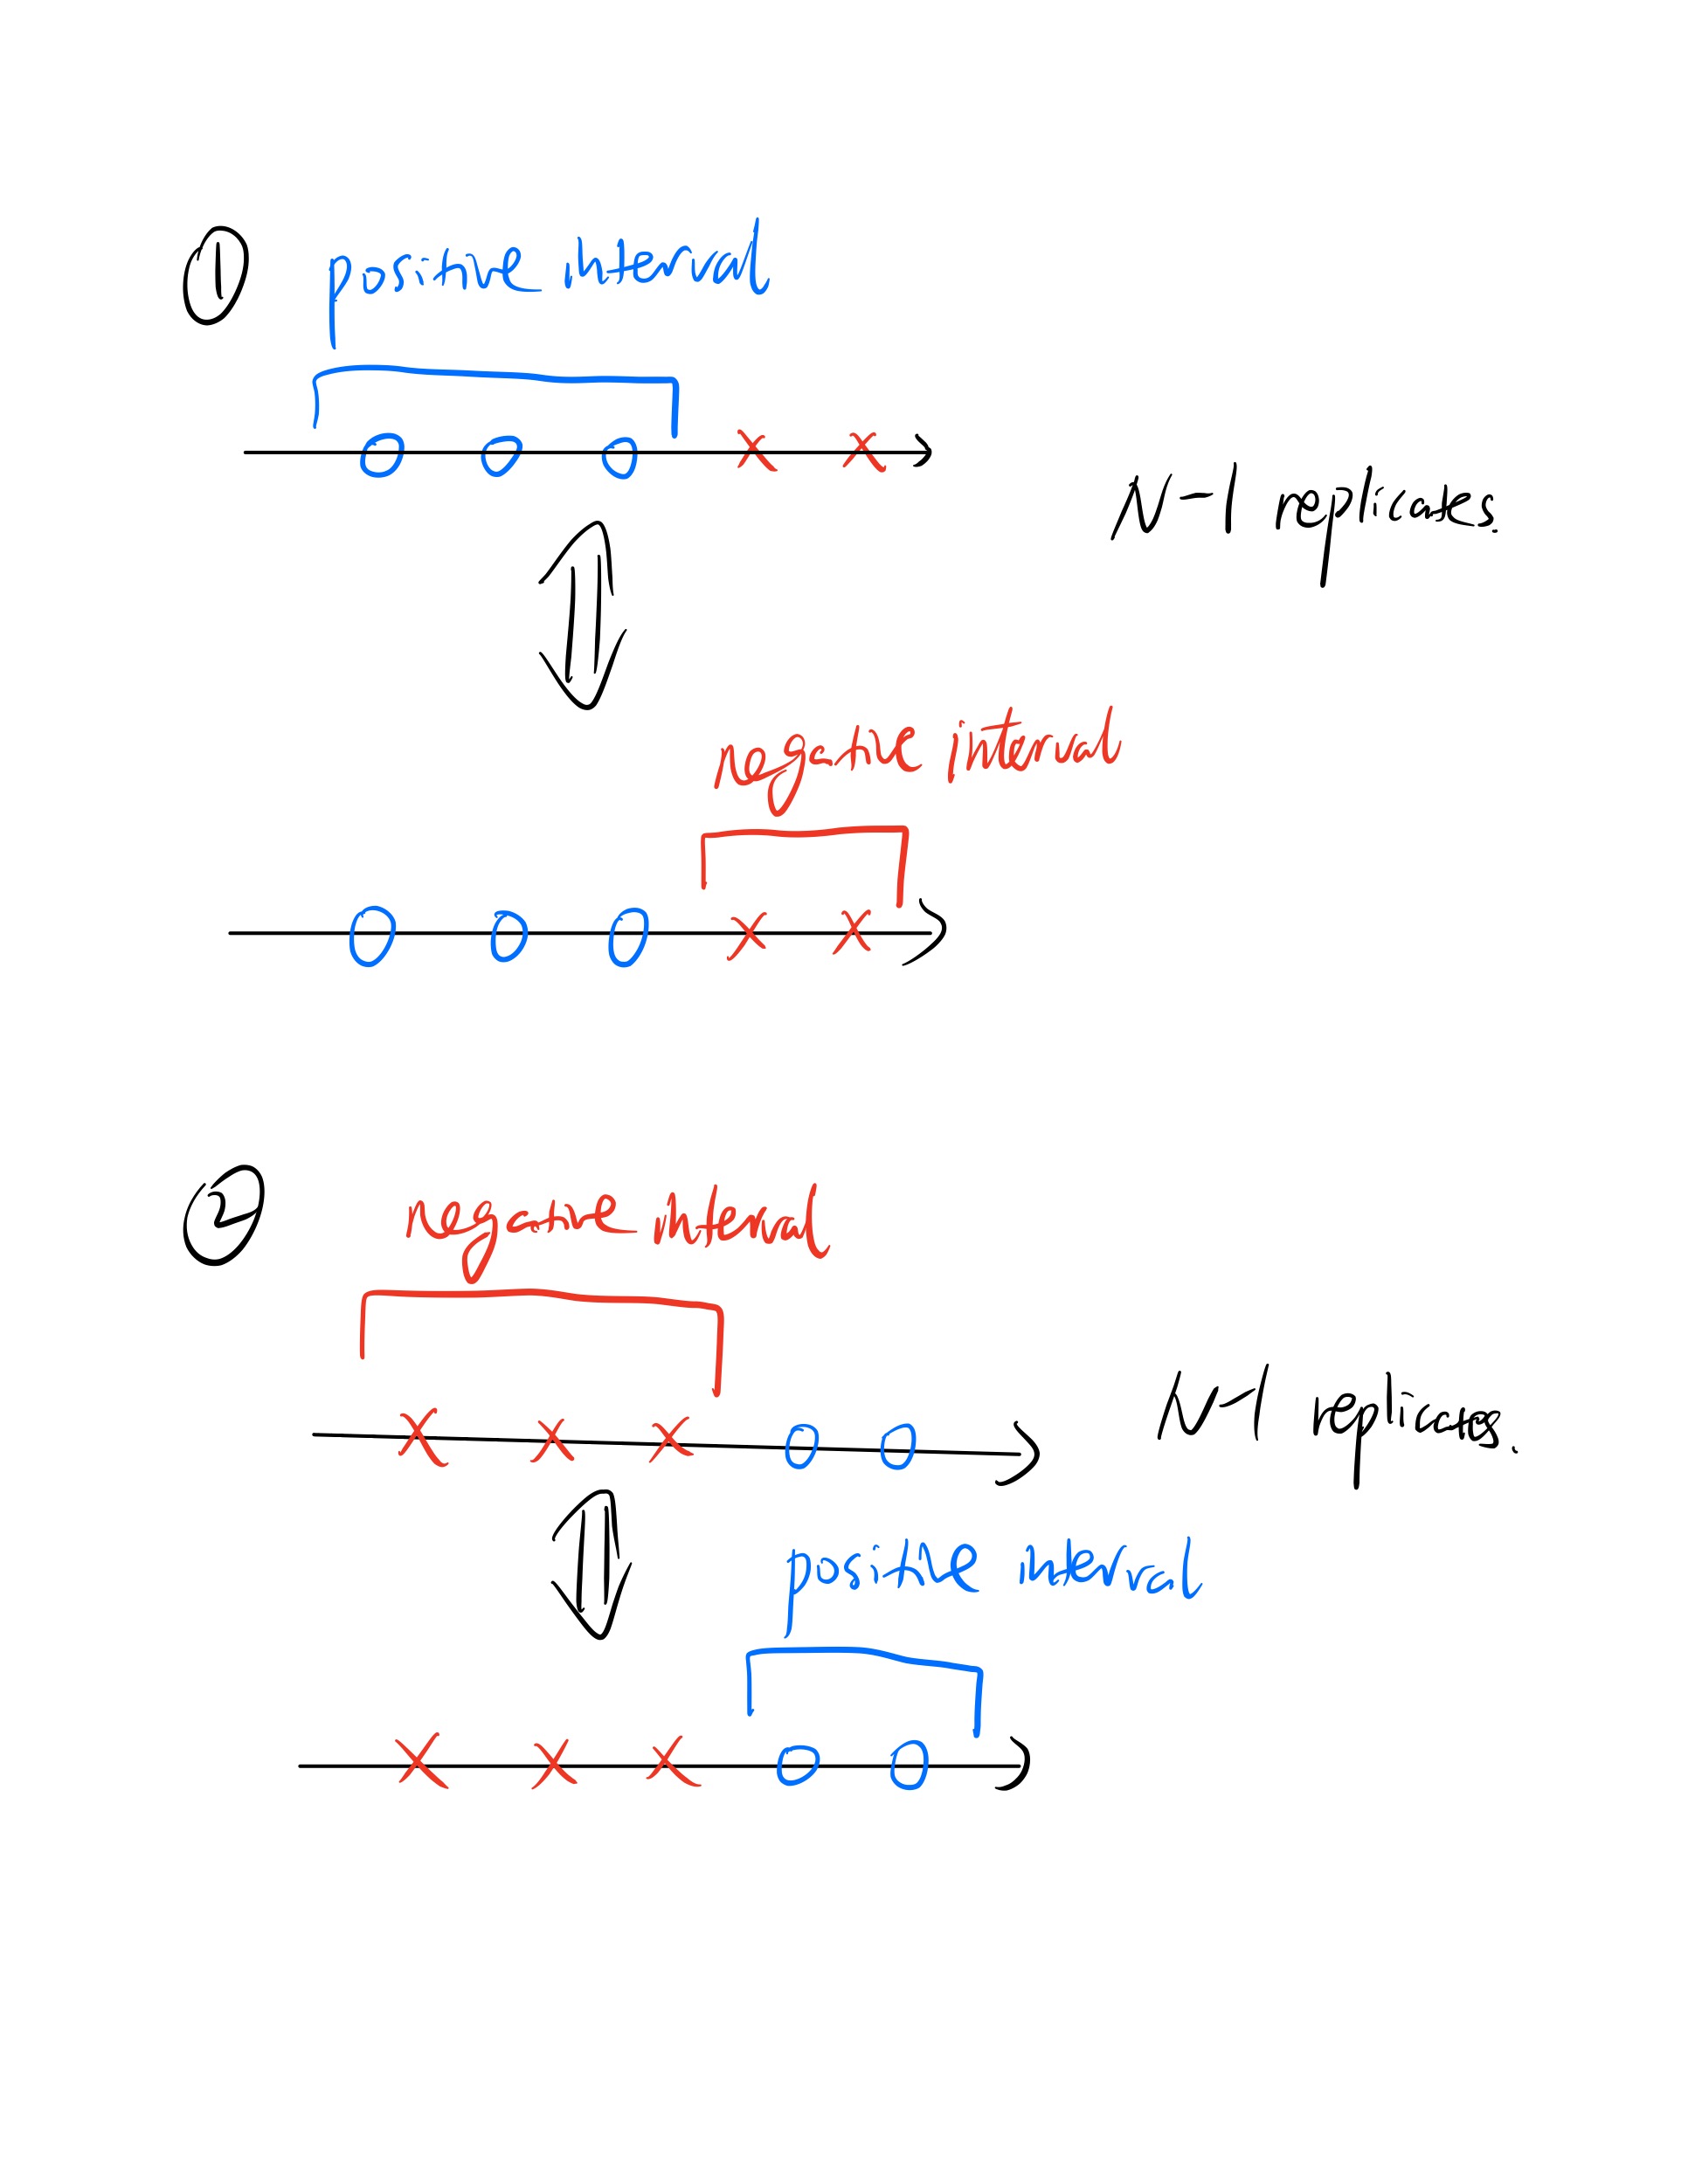 ① positive interval
N-1 replicates.
negative interval
② negative interval
N-1 replicates.
positive interval